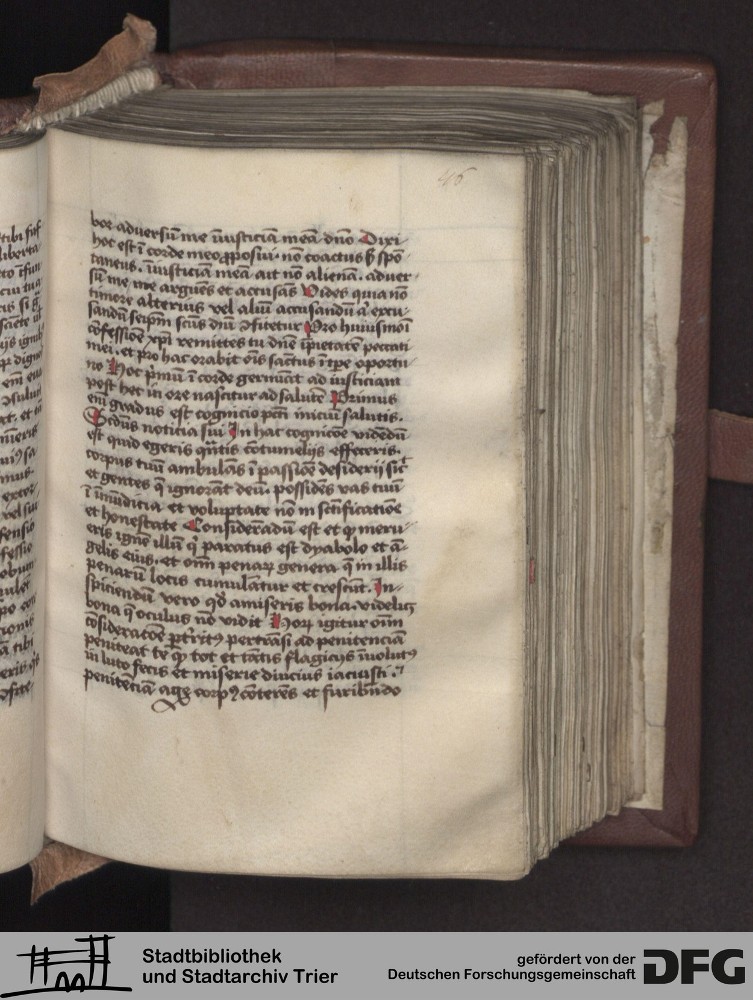 46
bor adversũ me iniusticiã meã dño Dixi
hoc est ĩ corde meo ꝓposui · nõ coactus ꝫ spõ
taneus · iniusticiã meã ait nõ alienã · adver
sũ me me arguẽs et accusãs Vides quia nõ
timore alterius vel aliũ accusandũ a excu
sandũ seipm̃ scũs dñũ ꝯfitetur Pro huiusmoĩ
cõfessiõe xp̃i remittes tu dñe ĩpietatẽ peccati
mei · et pro hac orabit oĩs sanctus ĩ tp̃e oportu
no Hoc p̃mũ ĩ corde germĩat ad iusticiam
post hec in ore nascitur ad salutẽ Primus
em̃ gradus est cognicio pctĩ iniciũ salutis ·
Scđus noticia sui In hac cognicõe vidẽdũ
est quid egeris q̃ntis cõtumelijs effeceris ·
corpus tuũ ambulãs ĩ passiõe desiderij sic̃
et gentes q̃ ignorãt deũ · possidẽs vas tuũ
ĩ ĩmũdicia et voluptate nõ in sctificatiõe
et honestate Considerãdũ est et ꝙ meru
eris ignẽ illũ q̃ paratus est dyabolo et ã
gelis eius · et om̃ penaꝝ genera q̃ in illis
penarũ locis cumulãtur et crescũt · In
spiciendũ vero qđ amiseris bona · videlicꝫ
bona q̃ oculus nõ vidit Hoꝝ igitur om̃
cõsideratõe ꝑtrit⁹ pertrãsi ad penitenciã
peniteat te ꝙ tot et tãtis flagicijs ĩuolut⁹
in luto fecis et miserie diucius iacuisti ·
penitẽciã agẽ corp⁹ cõterẽs et furibũdo
Stadtbibliothek
und Stadtarchiv Trier
gefördert von der
Deutschen Forschungsgemeinschaft
DFG